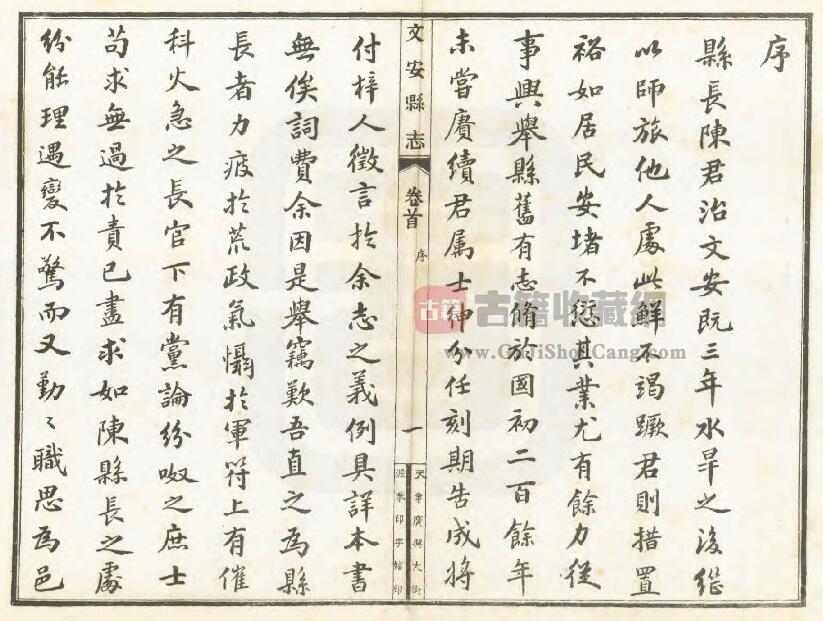 序
縣長陳君治文安既三年水旱之後繼
以師旅他人處此鮮不竭蹶君則措置
裕如居民安堵不愆其業尤有餘力從
事興舉縣舊有志脩於國初二百餘年
未嘗賡續君属士紳分任刻期告成將
文安縣志
卷首
序
一
天津廣興大街
源泰印字館印
付梓人徵言於余志之義例具詳本書
無俟詞費余因是舉竊歎吾直之為縣
長者力疲於荒政氣懾於軍符上有催
科火急之長官下有黨論紛呶之庶士
苟求無過於責已盡求如陳縣長之處
紛能理遇變不驚而又勤〻職思為邑
古籍
古籍收藏網
www.GuJiShouCang.com